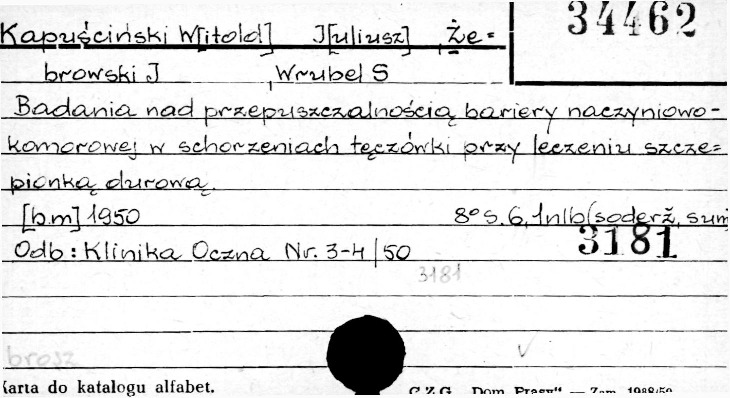 34462
Kapuściński W[itold] J[uliusz], Że=
browski J, Wrubel S
Badania nad przepuszczalnością bariery naczyniowo-
komorowej w schorzeniach tęczówki przy leczeniu szcze=
pionką durową.
[b.m] 1950 8° s. 6, 1nlb (soderž, sum
3181
Odb: Klinika Oczna Nr. 3-4/50
3181
brosz
Karta do katalogu alfabet. C.Z.G. „Dom Prasy" — Zam. 1988/50